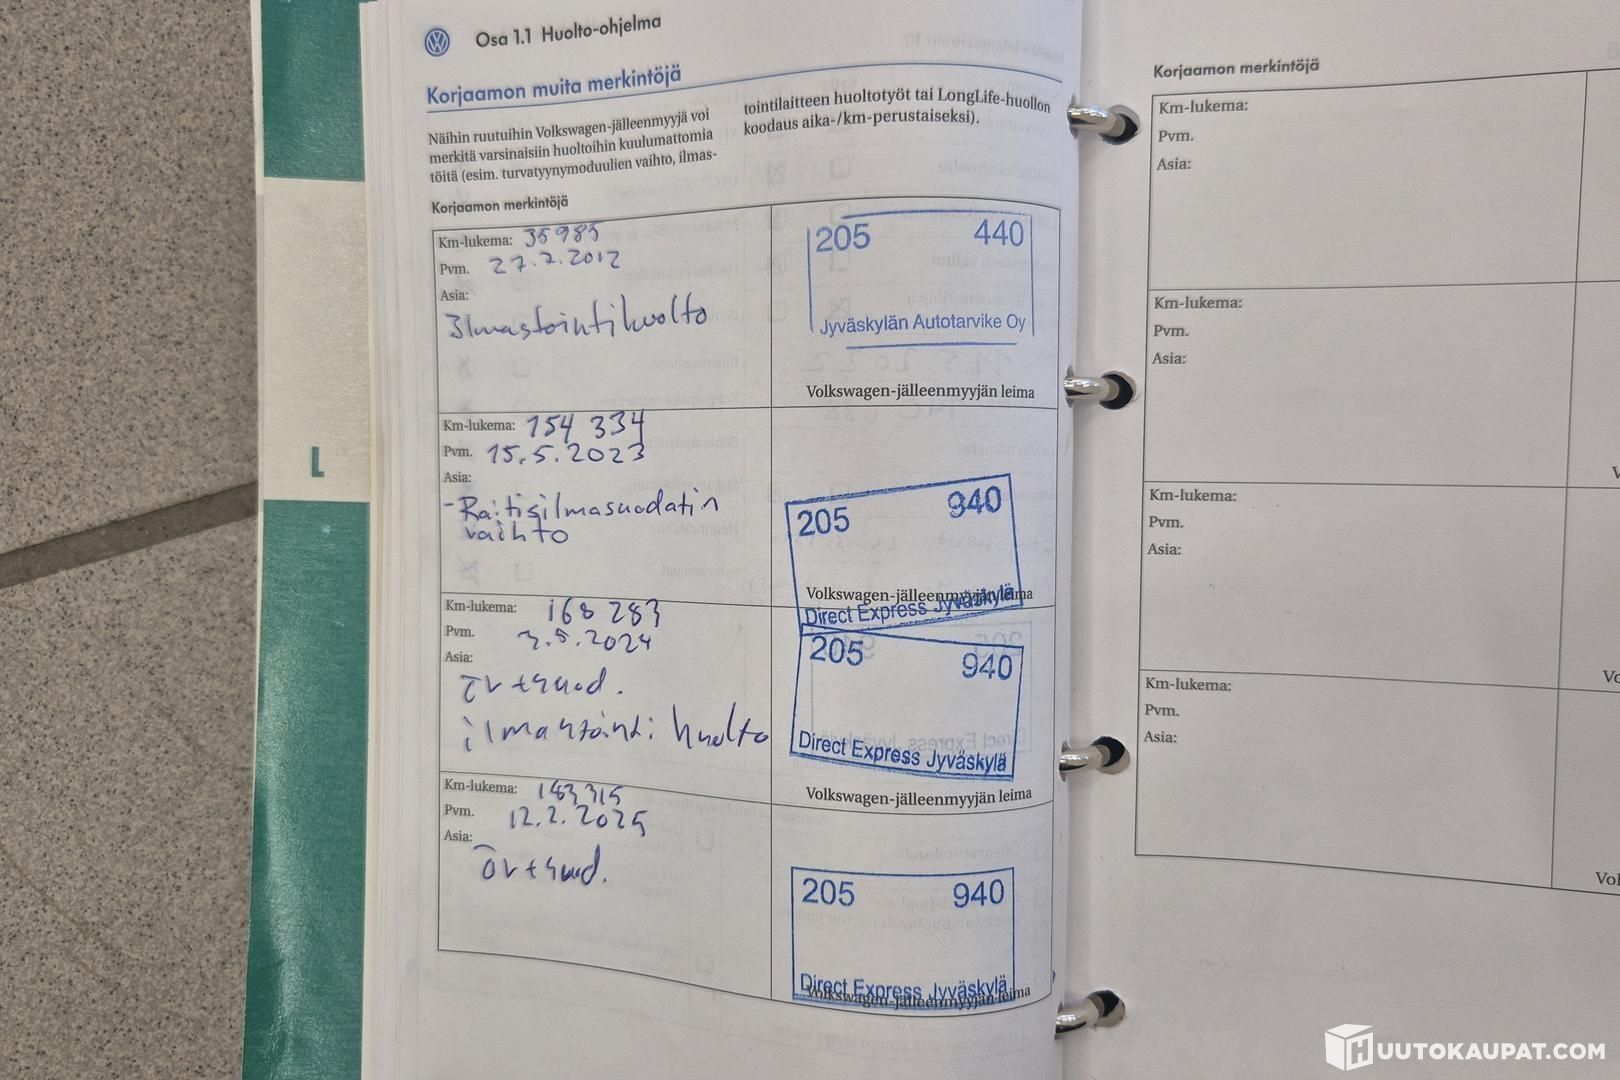 Osa 1.1 Huolto-ohjelma
Korjaamon muita merkintöjä
Näihin ruutuihin Volkswagen-jälleenmyyjä voi
merkitä varsinaisiin huoltoihin kuulumattomia
töitä (esim. turvatyynymoduulien vaihto, ilmas-
tointilaitteen huoltotyöt tai LongLife-huollon
koodaus aika-/km-perustaiseksi).
Korjaamon merkintöjä
Km-lukema: 35985
Pvm. 27.7.2012
Asia:
Ilmastointihuolto
205 440
Jyväskylän Autotarvike Oy
Volkswagen-jälleenmyyjän leima
Km-lukema: 154 334
Pvm. 15.5.2023
Asia:
- Raitisilmasuodatin
vaihto
205 940
Volkswagen-jälleenmyyjän leima
Direct Express Jyväskylä
Km-lukema: 168 283
Pvm. 3.5.2024
Asia:
ilmastointi huolto
205 940
Direct Express Jyväskylä
Volkswagen-jälleenmyyjän leima
Km-lukema: 183315
Pvm. 12.2.2025
Asia:
205 940
Direct Express Jyväskylä
Volkswagen-jälleenmyyjän leima
1
Korjaamon merkintöjä
Km-lukema:
Pvm.
Asia:
Km-lukema:
Pvm.
Asia:
Km-lukema:
Pvm.
Asia:
Km-lukema:
Pvm.
Asia:
HUUTOKAUPAT.COM